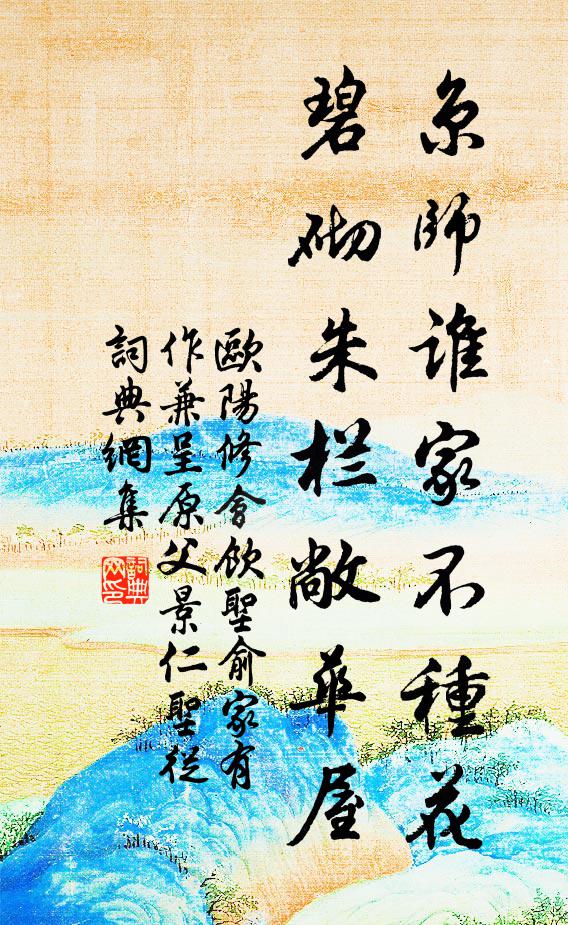 京師誰家不種花
碧砌朱栏敞華屋
歐陽修會飲聖俞家有
作兼呈原父景仁聖從
詞典網集
詞典
网印